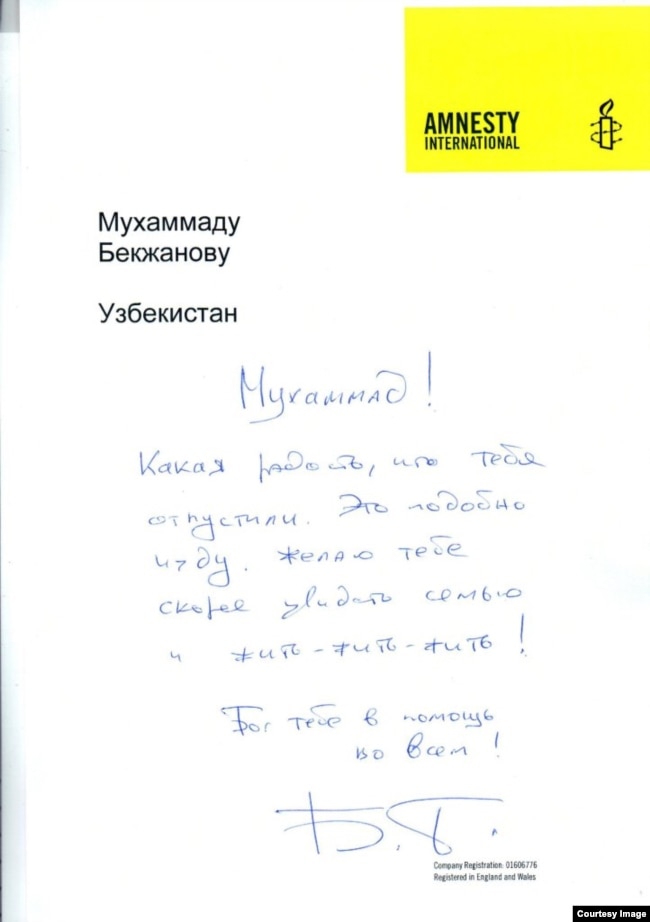 AMNESTY
INTERNATIONAL
Мухаммаду
Бекжанову
Узбекистан
Мухаммад!
Какая радость, что тебя
отпустили. Это подобно
чуду. Желаю тебе
скорее увидать семью
и жить-жить-жить!
Бог тебе в помощь
во всем!
Б.Г.
Company Registration: 01606776
Registered in England and Wales
Courtesy Image